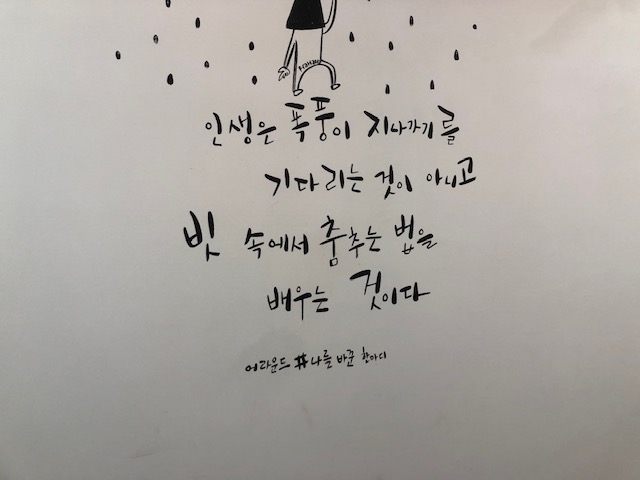 인생은 폭풍이 지나가기를
기다리는 것이 아니고
빗 속에서 춤추는 법을
배우는 것이다
어라운드 #나를 바꾼 한마디